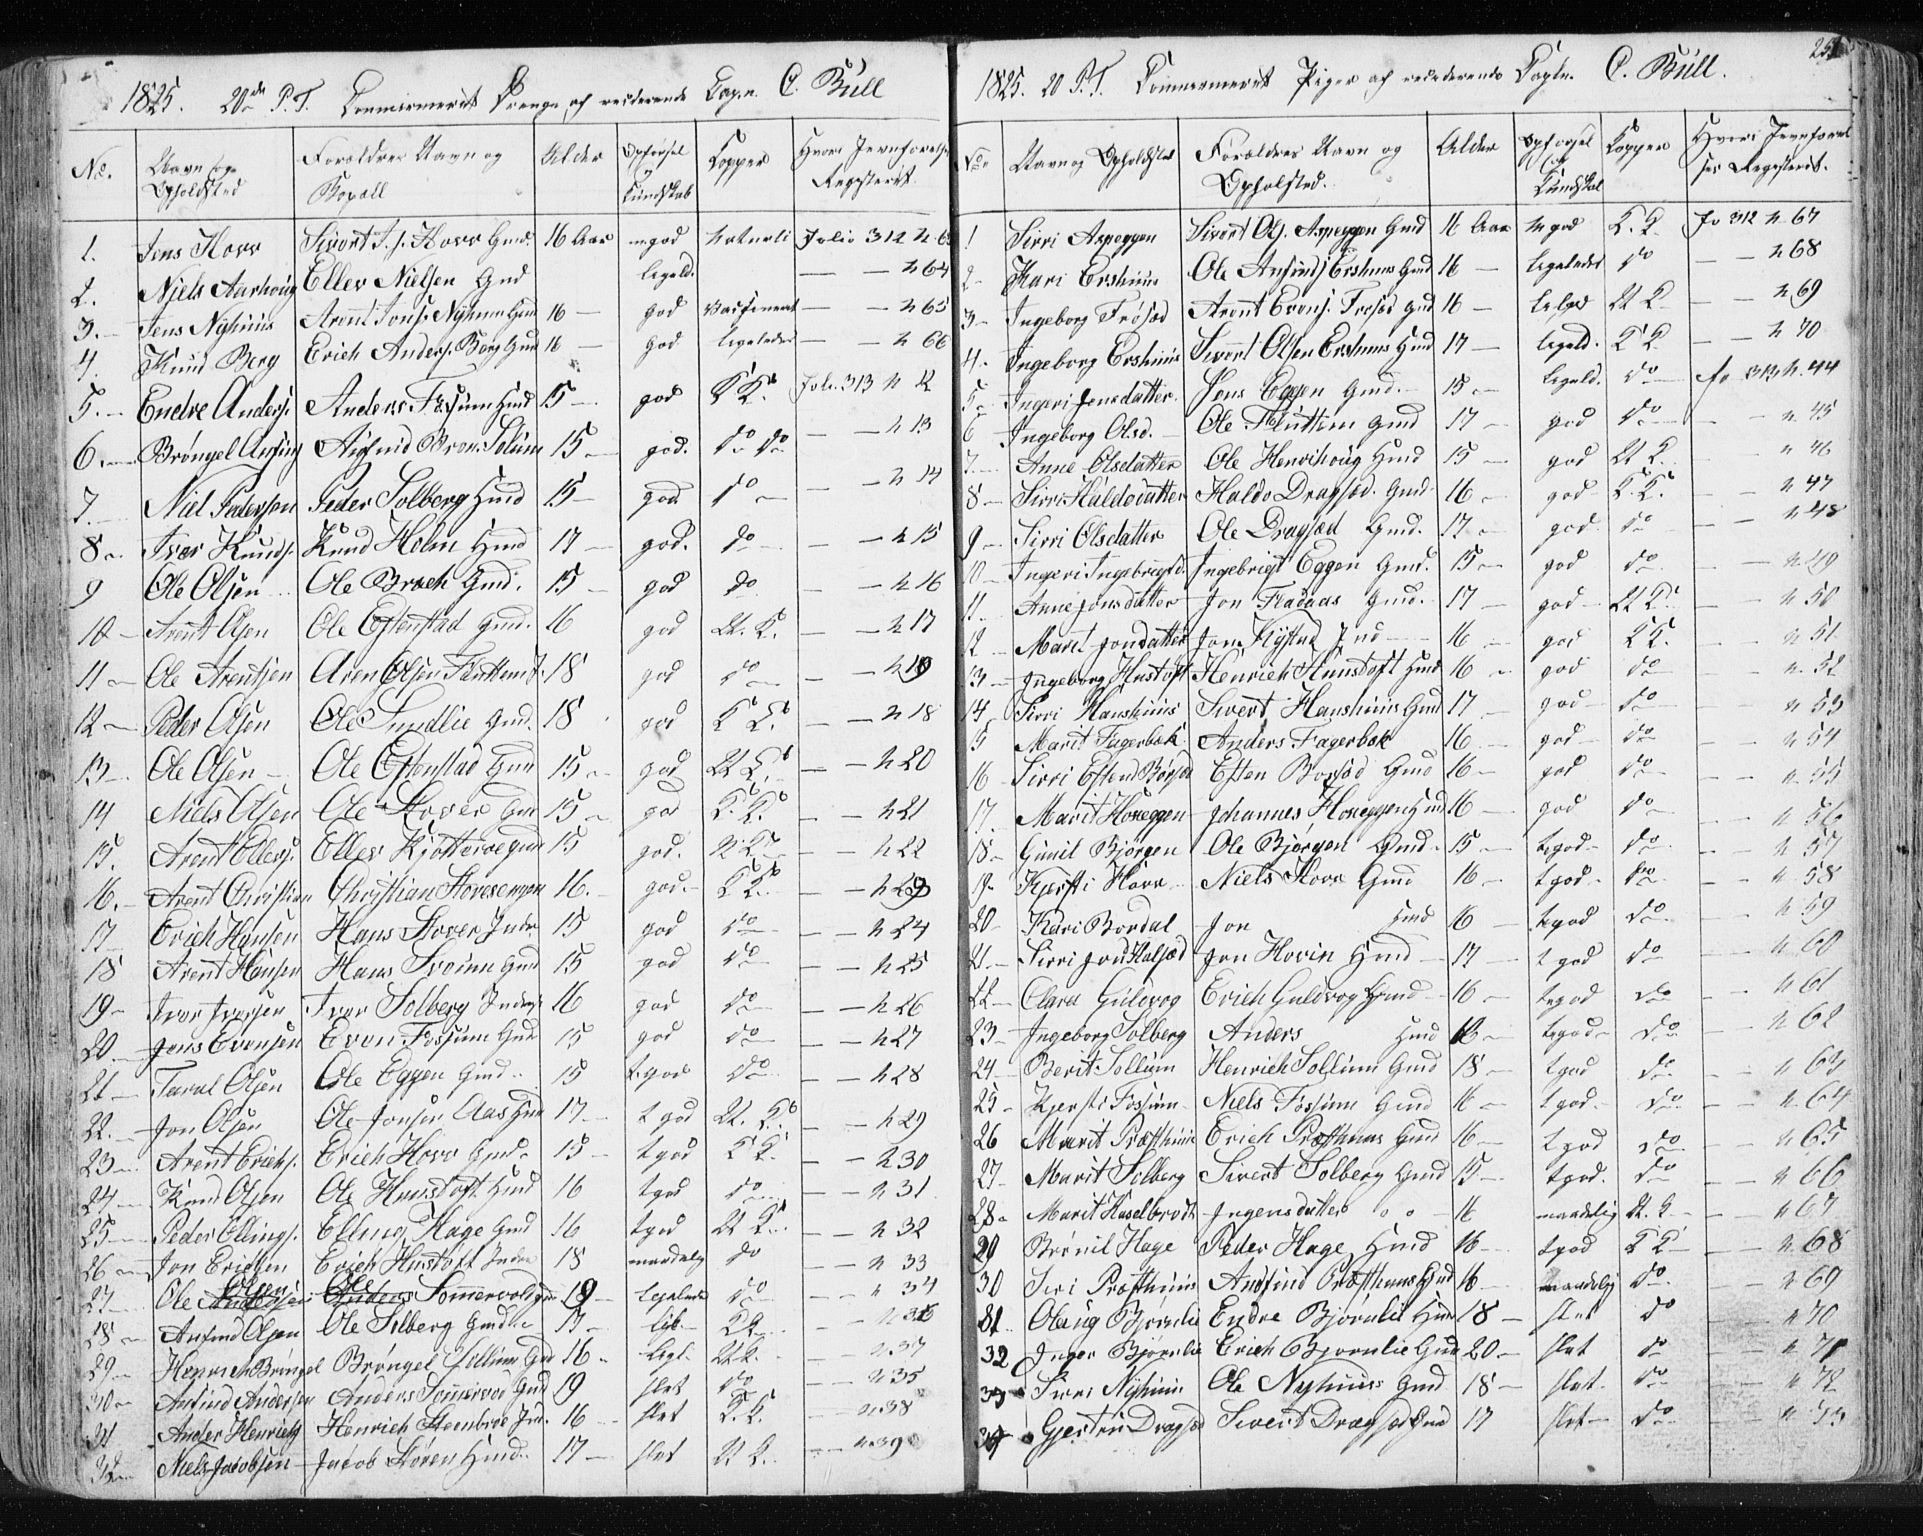 1825. 20de P. T. Confirmerede Drenge af residerende Capn. C. Bull
No. Navn og Opholdsted Forældres Navn og Bopæll Alder Opførsel og Kundskab Kopper Hvori Jevnførelses Registeret
1. Jens Horr Sivert J. s. Horr Gmd. 16 Aar m god Naturli Folio 312 N. 6
2. Niels Aarhoug Eller Nielsen Gmd ligeld. — — N 64
3. Jens Nyhuus Arent Jons. Nyhuus Gmd 16 — god Vaccineret — — N 65
4. Knud Berg Erich Anders. Berg Gmd 16 — god ligeledes — — N 66
5. Endre Anders. Anders Fossum Hmd 15 — god K K. Folio 313 N 12
6. Brøngel Anfins Anfind Bron. Solum 15 — god. do do — — N 13
7. Niel Pedersen Peder Solberg Hmd 15 — god do — — N 14
8 Ivar Knuds. Knud Holm Hmd 17 — god. do — — N 15
9 Ole Olsen Ole Broch Gmd. 15 — god do — — N 16
10 Arent Olsen Ole Estenstad Gmd. 16 god U. K. — — N 17
11 Ole Arentsen Aren Olsen Fluttum 18 god do — — N 19
12 Peder Olsen Ole Sundlie Gmd. 18 god K K — — N 18
13 Ole Olsen Ole Estenstad Gmd 15 god U K. — — N 20
14 Niels Olsen Ole Horer Gmd 15 god K. K. — — N 21
15. Arent Ellers. Eller Kjøtterøe Gmd 15 god. U K — — N 22
16. Arent Christian Christian Horesengen 16. god. K K. — — N 23
17 Erich Hansen Hans Horer Inds 15 god do — — N 24
18 Arent Hansen Hans Svenn Gmd 15 god do — — N 25
19 Ivar Iversen Ivar Solberg Inds. 16 god do — — N 26
20 Jens Evensen Even Fossum Gmd 15 god do — — N 27
21 Taral Olsen Ole Eggen Gmd 15 t. god do — — N 28
22. Jon Olsen Ole Jonsen Aas Hmd 17 t god U. K. — — N 29
23 Arent Erichs. Erich Horr Gmd. 15 t god K K. — — N 30
24 Knud Olsen Ole Hunstoft Hmd 16 t god do — — N 31
25 Peder Ellings. Elling Hage Gmd 16 t god U K. — N 32
26 Jon Erichsen Erich Hustoft Inds 18 maadelig do — N 33
27 Ole Olsen Ole Sommervold Gmd 19 ligeledes do — N 34
28 Anfind Olsen Ole Solberg Gmd 17 lig. K K. — N 36
29 Henrich Brøngel Brøngel Sollum Gmd 16 ligl. U K. — N 37
30 Anfind Andersen Anders Sommervod Gmd 19 slet do — N 35
31 Ander Henrichs Henrich Steenbroe Ind. 16 slet K. K. — N 38
32 Niels Jacobsen Jacob Støren Hmd. 17 slet U K. — N 39
1825. 20 P. T. Confirmerede Piger af residerende Capln. C. Bull.
No. Navn og Opholdsted Forældres Navn og Opholsted. Alder Opførsel og Kundskab Kopper Hvori Jevnførelses Registeret.
1 Sirri Aspeggen Sivert Ols. Aspeggen Gmd 16 Aar m god K. K. fo 312 N 67
2 Kari Ershuus Ole Anfinds Ershuus Gmd 16 — ligeledes do — — N 68
3 Ingeborg Frøsæd Arent Evens. Frøsæd Gmd 16 — ligled U K — — N 69
4. Ingeborg Ershuus Sivert Olsen Ershuus Hmd 17 — ligeld. K K — — N 70
5 Ingeri Jonsdatter Jens Eggen Gmd. 15 — ligeld. do fo 313 N. 44
6 Ingeborg Olsd. Ole Fluttum Gmd 17 — god do — N 45
7. Anne Olsdatter Ole Henrihoug Hmd 15 — god U K. N 46
8 Sirri Haldodatter Haldo Dragsed. Gmd. 16 god K. K. — N 47
9 Sirri Olsdatter Ole Dragsed Gmd. 17 god do — — N 48
10 Ingeri Ingebrigtd. Ingebrigt Eggen Gmd. 15 god do — N 49
11. Anne Jonsdatter Jon Fladaas Gmd. 17 god U K. — N 50
12 Marit Jondatter Jon Kystad Ind 16 god K K. — N 51
13 Ingeborg Hustoft Henrich Hunstoft Hmd 16 god do — N 52
14 Sirri Hanshuus Sivert Hanshuus Gmd 17 god do N 53
15 Marit Fagerbek Anders Fagerbek 16 god do — N 54
16 Sirri Estend Børsæd Esten Borsød Gmd 16 god do — N 55
17. Marit Honeggen Johannes Honeggen Hmd 16 god do — N 56
18 Gunil Bjørgen Ole Bjørgen Gmd. 15 t god do — N 57
19 Kjersti Horr Niels Horr Gmd 16 t god do — N 58
20 Kari Bordal Jon Hmd 16 t god do — N 59
21. Sirri Jond Halsæd Jon Horin Hmd 17 t god do — N 60
22 Clara Guldvog Erich Guldvog Hmd 16 t god do — N 61
23 Ingeborg Solberg Anders Hmd 18 t god do — N 62
24 Berit Sollum Henrich Sollum Gmd 18 t god do — N 63
25 Kjersti Fossum Niels Fossum Gmd 16 t god do — N 64
26 Marit Præsthuus Erich Præsthuus Gmd 16 t god do — N 65
27 Marit Solberg Sivert Solberg Gmd 15 t god. do — N 66
28 Marit Haselbrods Ingensdatter 16 maadelig U. K — N 67
29 Brønil Hage Peder Hage Hmd 16 t god K K — N 68
30 Siri Præsthuus Andfind Præsthuus Gmd 16 maadelig do — N 69
31 Olaug Bjørnlie Endre Bjørnlie Hmd 18 slet do — N 70
32 Inger Bjørnlie Erich Bjørnlie Gmd 20 slet do — N 71
33 Sirri Nyhuus Ole Nyhuus Gmd 18 slet do — N 72
34 Gjertru Dragsed Sivert Dragsed Gmd 17 slet do — N 73